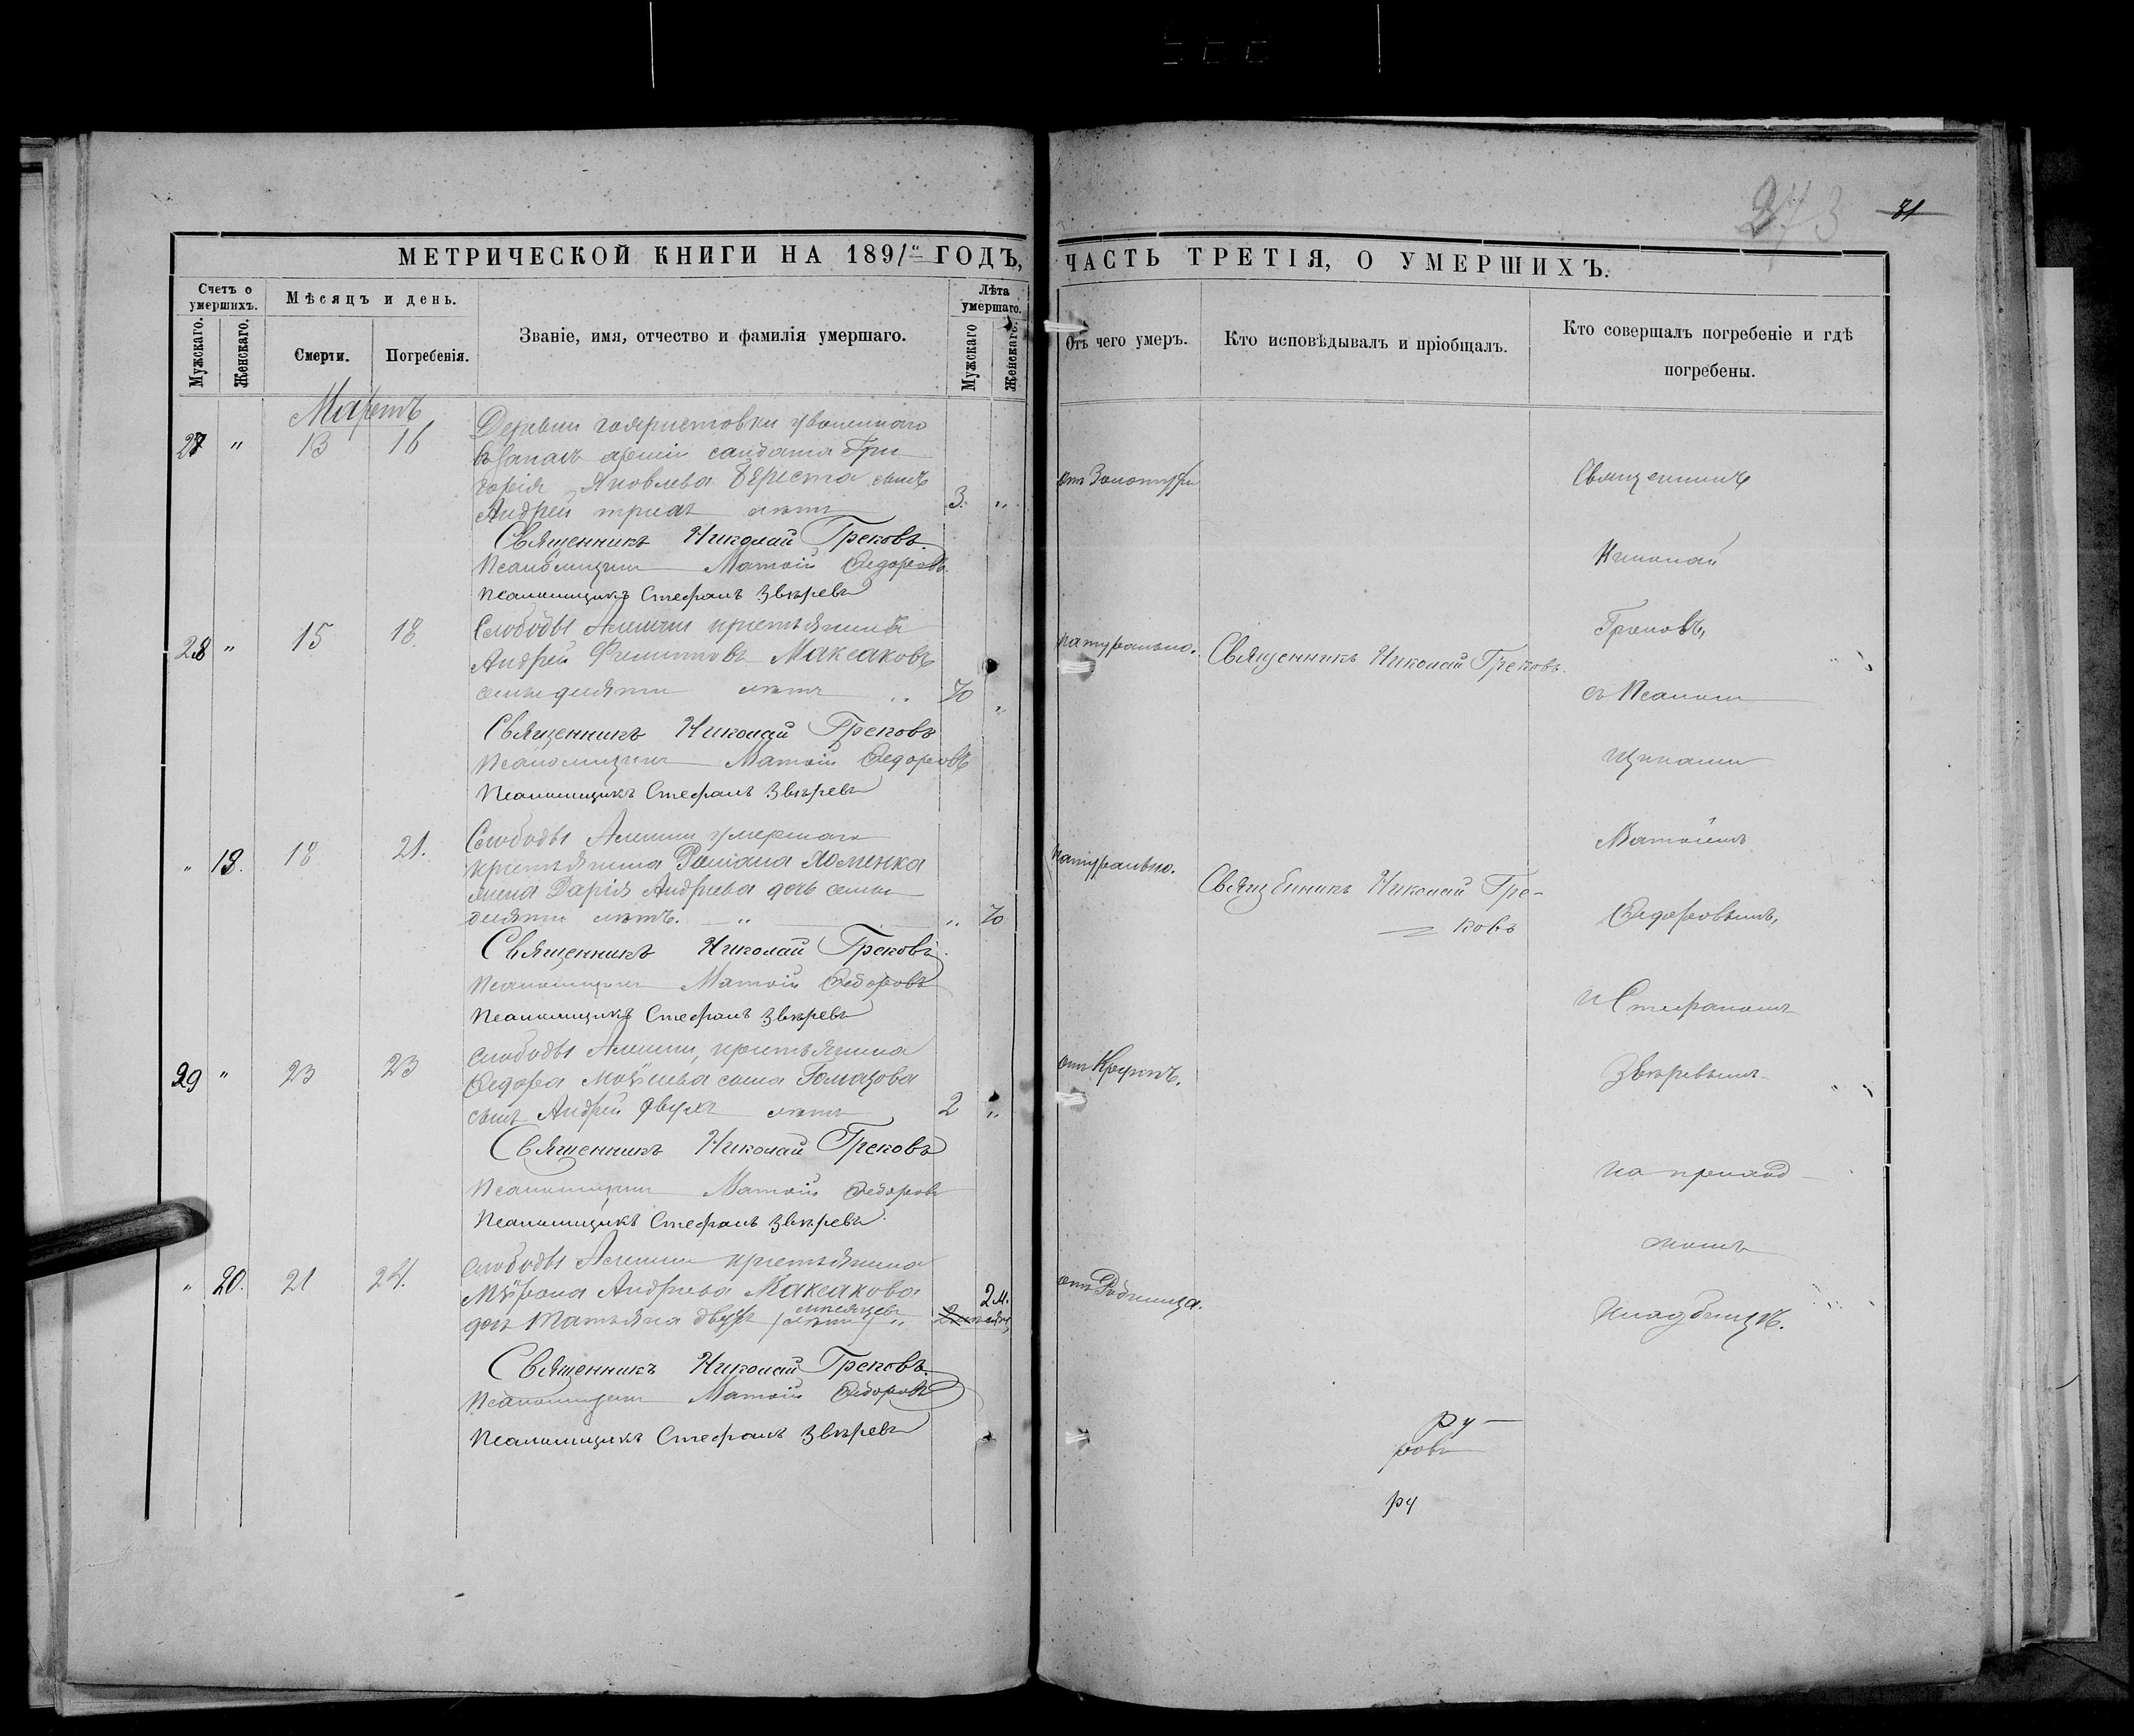 273 81
МЕТРИЧЕСКОЙ КНИГИ НА 1891 ГОДЪ,
Счетъ о умершихъ.
Мужскаго.
Женскаго.
Мѣсяцъ и день.
Смерти.
Погребенія.
Званіе, имя, отчество и фамилія умершаго.
Лѣта умершаго.
Мужскаго
Женскаго.
Мартъ
27 " 13 16
Деревни уволеннаго
въ запасъ арміи солдата Гри
горія Яковлева Береста сынъ
Андрей трехъ лѣтъ 3. "
Священникъ Николай Грековъ.
Псаломщикъ Матѳій Ѳедоровъ.
Псаломщикъ Стефанъ Звѣревъ
28 " 15 18
Слободы крестьянинъ
Андрей Максаковъ
семидесяти лѣтъ " 70 "
Священникъ Николай Грековъ
Псаломщикъ Матѳій Ѳедоровъ
Псаломщикъ Стефанъ Звѣревъ
" 19. 18 21.
Слободы умершаго
крестьянина Хоменка
жена Дарія Андреева дочь семи
десяти лѣтъ. " " 70
Священникъ Николай Грековъ.
Псаломщикъ Матѳій Ѳедоровъ
Псаломщикъ Стефанъ Звѣревъ
29 " 23 23
Слободы крестьянина
Ѳедора сына
сынъ Андрей двухъ лѣтъ 2 "
Священникъ Николай Грековъ
Псаломщикъ Матѳій Ѳедоровъ
Псаломщикъ Стефанъ Звѣревъ.
" 20. 21 24.
Слободы крестьянина
Мѵрона Андреева Максакова
дочь Татьяна двухъ (лѣтъ) мѣсяцевъ " 2 м.
Священникъ Николай Грековъ.
Псаломщикъ Матѳій Ѳедоровъ
Псаломщикъ Стефанъ Звѣревъ
ЧАСТЬ ТРЕТІЯ, О УМЕРШИХЪ.
Отъ чего умеръ.
Кто исповѣдывалъ и пріобщалъ.
Кто совершалъ погребеніе и гдѣ погребены.
отъ Золотухи
натурально.
Священникъ Николай Грековъ.
натурально.
Священникъ Николай Гре-
ковъ
отъ Крупъ.
отъ Родимца.
Священникъ
Николай
Грековъ,
съ Псалом
щиками
Матѳіемъ
Ѳедоровымъ,
и Стефаномъ
Звѣревымъ
на приход
скомъ
кладбищѣ.
ру
ровъ
ру